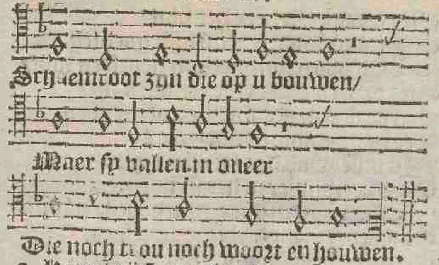 Schaemroot zyn die op u bouwen/
Maer sy vallen in oneer
Die noch trou noch woort en houwen.